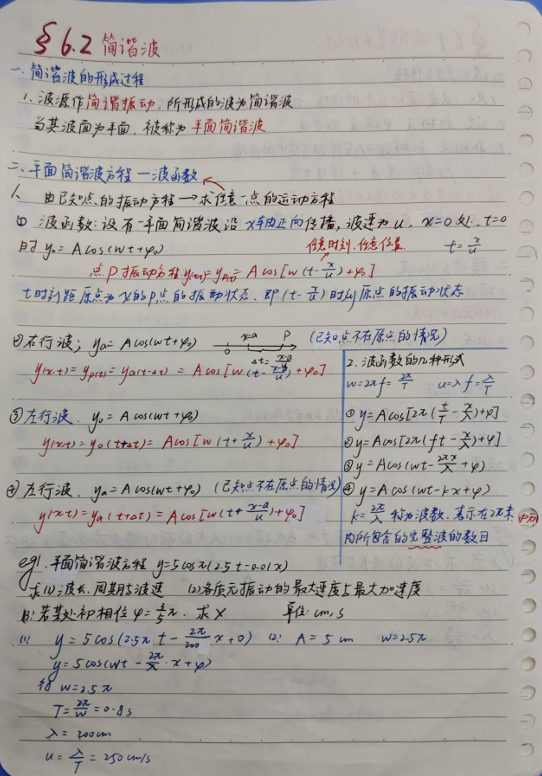 §6.2 简谐波
一、简谐波的形成过程
1、波源作简谐振动,所形成的波为简谐波
当其波面为平面,被称为平面简谐波
二、平面简谐波方程—波函数
1、由已知点的振动方程→求任意一点的运动方程
① 波函数:设有一平面简谐波沿x轴正向传播,波速为u, x=0处, t=0
时 y₀=Acos(wt+φ₀) 任意时刻,任意位置 t=x/u
点P振动方程y(x,t)=yₚ(t)=Acos[w(t-x/u)+φ₀]
t时刻距原点为x的P点的振动状态,即(t-x/u)时刻原点的振动状态
②右行波; yₐ=Acos(wt+φ₀) 0 x-a P (已知点不在原点的情况)
Δt=(x-a)/u
y(x,t)=yₚ(t)=yₐ(t-Δt)=Acos[w(t-(x-a)/u)+φ₀]
③左行波. y₀=Acos(wt+φ₀)
y(x,t)=y₀(t+Δt)=Acos[w(t+x/u)+φ₀]
④左行波. yₐ=Acos(wt+φ₀) (已知点不在原点的情况)
y(x,t)=yₐ(t+Δt)=Acos[w(t+(x-a)/u)+φ₀]
2.波函数的几种形式
w=2πf=2π/T u=λf=λ/T
①y=Acos[2π(t/T-x/λ)+φ]
②y=Acos[2π(ft-x/λ)+φ]
③y=Acos(wt-2πx/λ+φ)
④y=Acos(wt-kx+φ)
k=2π/λ 称为波数,表示在2π米
内所含的完整波的数目
eg1.平面简谐波方程 y=5cosπ(2.5t-0.01x)
求(1)波长、周期与波速 (2)各质元振动的最大速度与最大加速度
(3)若某处初相位φ=3/5π. 求x 单位:cm,s
(1) y=5cos(2.5πt-2π/200x+0) (2) A=5cm w=2.5π
y=5cos(wt-2π/λ·x+φ)
得 w=2.5π
T=2π/w=0.8s
λ=200cm
u=λ/T=250cm/s